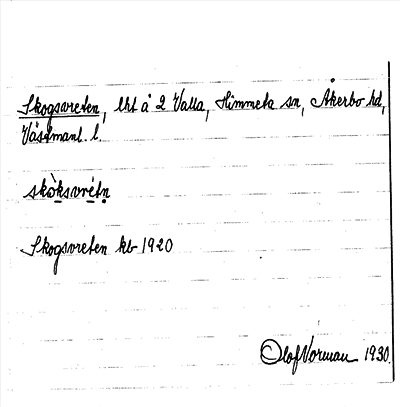 Skogsvreten, lht å 2 Valla, Himmeta sn, Åkerbo hd,
Västmanl. l.
skòksvré̀tn̥
Skogsvreten kb 1920
Olof Norman 1930.